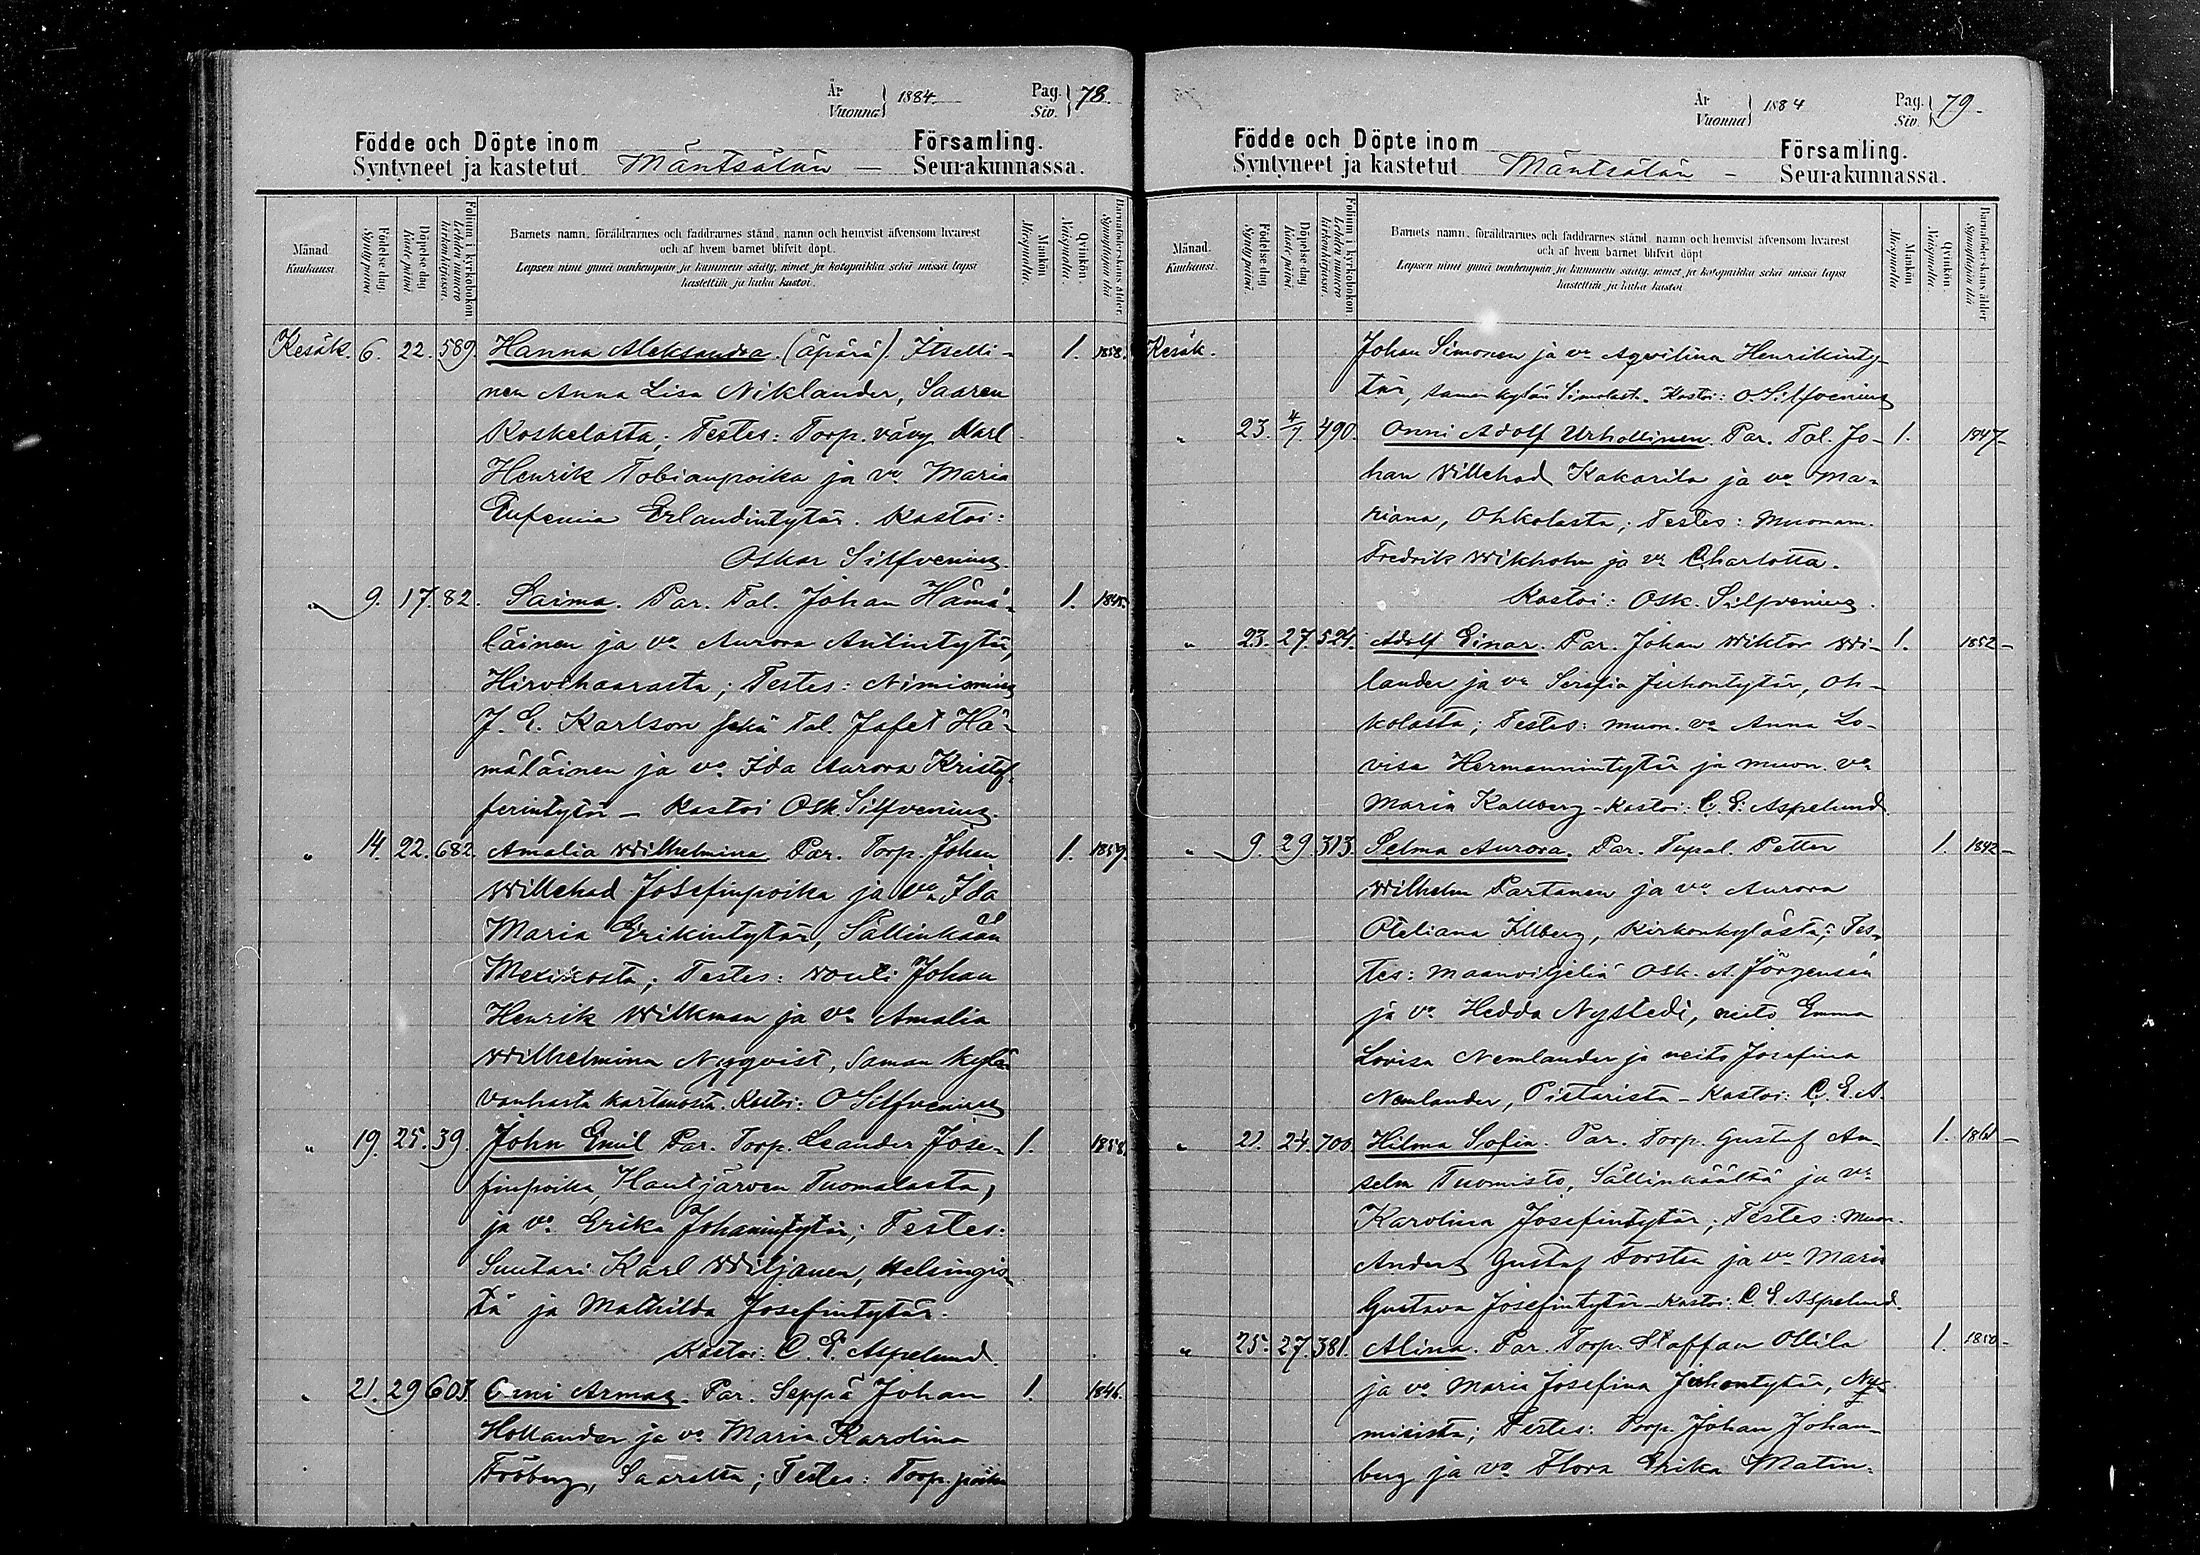 År
Vuonna 1884.
Pag.
Siv. 78.
Födde och Döpte inom Församling.
Syntyneet ja kastetut Mäntsälän — Seurakunnassa.
Månad. Kuukausi.
Födelse dag. Synty päivä.
Döpelse dag. Kaste päivä.
Folium i kyrkoboken Lehden numero kirkonkirjassa.
Barnets namn, föräldrarnes och faddrarnes stånd, namn och hemvist äfvensom hvarest
och af hvem barnet blifvit döpt.
Lapsen nimi ynnä vanhempain ja kummein sääty, nimet ja kotopaikka sekä missä lapsi
kastettiin ja kuka kastoi.
Mankön. Miespuolta.
Qvinkön. Naispuolta.
Barnaföderskans ålder. Synnyttäjän ikä
Kesäk. 6. 22. 589. Hanna Aleksandra. (äpärä). Itselli- 1. 1858.
nen Anna Lisa Niklander, Saaren
Koskelasta; Testes: Torp. vävy Karl
Henrik Tobianpoika ja vo. Maria
Eufemia Erlandintytär. Kastoi:
Oskar Silfvenius.
" 9. 17. 82. Saima. Par. Tal. Johan Hämä- 1. 1845.
läinen ja vo. Aurora Antintytär,
Hirvihaarasta; Testes: Nimismies
J. E. Karlson sekä Tal. Jafet Hä-
mäläinen ja vo. Ida Aurora Kristof-
ferintytär — Kastoi Osk. Silfvenius.
" 14. 22. 682. Amalia Wilhelmina. Par. Torp. Johan 1. 1859.
Willehad Josefinpoika ja vo. Ida
Maria Erikintytär, Sällinkään
Mexikosta; Testes: vouti Johan
Henrik Willkman ja vo. Amalia
Wilhelmina Nyqvist, saman kylän
vanhasta kartanosta. Kastoi: O Silfvenius
" 19. 25. 39. John Emil Par. Torp. Leander Jose- 1. 1858.
finpoika, Hautjärven Tuomalasta,
ja vo. Erika Johanintytär; Testes:
Suutari Karl Wiljanen, Helsingis-
tä ja Mathilda Josefintytär.
Kastoi: C. E. Aspelund.
" 21. 29 603. Onni Armas. Par. Seppä Johan 1. 1846.
Hollander ja vo. Maria Karolina
Fröberg, Saarelta; Testes: Torp. poika
År
Vuonna 1884
Pag.
Siv. 79.
Födde och Döpte inom Församling.
Syntyneet ja kastetut Mäntsälän — Seurakunnassa.
Månad. Kuukausi.
Födelse dag. Synty päivä.
Döpelse dag. Kaste päivä.
Folium i kyrkoboken. Lehden numero kirkonkirjassa.
Barnets namn, föräldrarnes och faddrarnes stånd, namn och hemvist äfvensom hvarest
och af hvem barnet blifvit döpt
Lapsen nimi ynnä vanhempain ja kummein sääty, nimet ja kotopaikka sekä missä lapsi
kastettiin ja kuka kastoi
Mankön. Miespuolta
Qvinkön. Naispuolta.
Barnaföderskans ålder Synnyttäjän ikä
Kesäk. Johan Simonen ja vo. Aqvilina Henrikinty-
tär, saman kylän Simolasta. Kastoi: O. Silfvenius
" 23. 4/7 490. Onni Adolf Urhollinen. Par. Tal. Jo- 1. 1847-
han Willehad Kakarila ja vo. Ma-
riana, Ohkolasta; Testes: Muonam.
Fredrik Wikholm ja vo. Charlotta.
Kastoi: Osk. Silfvenius.
" 23. 27. 524. Adolf Einar. Par. Johan Wiktor Wi- 1. 1852-
lander ja vo. Serafia Juhontytär, Oh-
kolasta; Testes: muon. vo. Anna Lo-
visa Hermannintytär ja muon. vo.
Maria Kallberg - Kastoi: C. E. Aspelund.
" 9. 29 313. Selma Aurora. Par. Tupal. Petter 1. 1842-
Wilhelm Partanen ja vo. Aurora
Oteliana Illberg, Kirkonkylästä; Tes-
tes: maanviljeliä Osk. A. Jörgensén
ja vo. Hedda Nystedt, neito Emma
Lovisa Nemlander ja neito Josefina
Nemlander, Pietarista - Kastoi: C. E. A.
" 21. 24. 700. Hilma Sofia. Par. Torp. Gustaf An- 1. 1861-
selm Tuomisto, Sällinkäältä ja vo.
Karolina Josefintytär; Testes: Muon.
Anders Gustaf Forsten ja vo. Maria
Gustava Josefintytär - Kastoi: C. E. Aspelund.
" 25. 27. 381. Alina. Par. Torp. Staffan Ollila 1. 1850-
ja vo. Maria Josefina Juhontytär, Nu-
misista; Testes: Torp. Johan Johan-
berg ja vo. Flora Erika Matin-